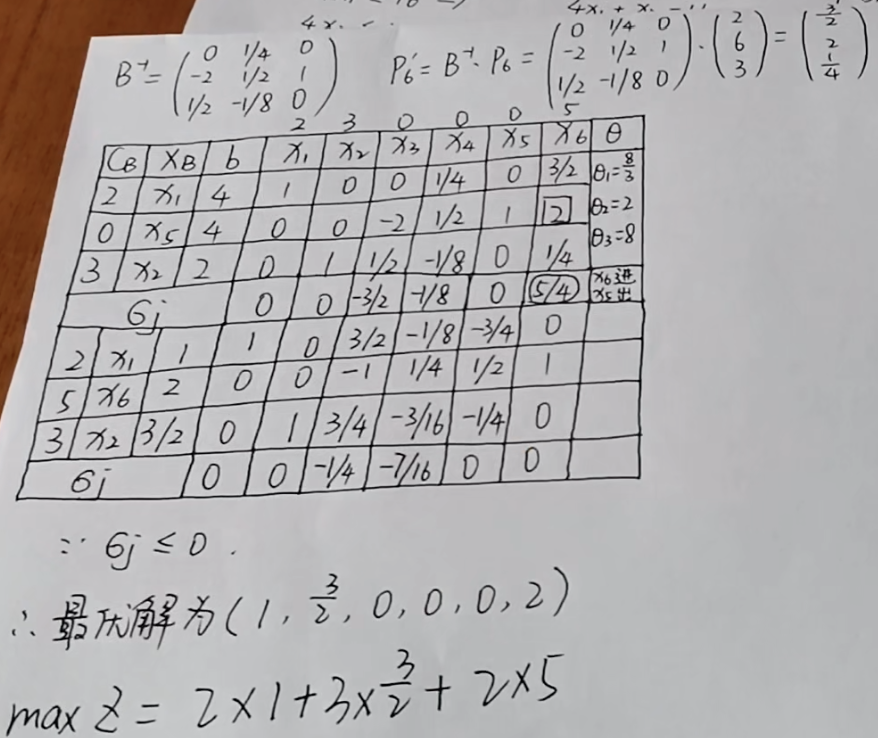 B⁻¹ = ( 0 1/4 0 ; -2 1/2 1 ; 1/2 -1/8 0 ) P₆' = B⁻¹ · P₆ = ( 0 1/4 0 ; -2 1/2 1 ; 1/2 -1/8 0 ) · ( 2 ; 6 ; 3 ) = ( 3/2 ; 2 ; 1/4 )
2 3 0 0 0 5
C_B X_B b x₁ x₂ x₃ x₄ x₅ x₆ θ
2 x₁ 4 1 0 0 1/4 0 3/2 θ₁=8/3
0 x₅ 4 0 0 -2 1/2 1 2 θ₂=2
3 x₂ 2 0 1 1/2 -1/8 0 1/4 θ₃=8
σj 0 0 -3/2 -1/8 0 5/4 x₆进 x₅出
2 x₁ 1 1 0 3/2 -1/8 -3/4 0
5 x₆ 2 0 0 -1 1/4 1/2 1
3 x₂ 3/2 0 1 3/4 -3/16 -1/4 0
σj 0 0 -1/4 -7/16 0 0
∵ σj ≤ 0 .
∴ 最优解为(1, 3/2, 0, 0, 0, 2)
max Z = 2×1+3×3/2+2×5